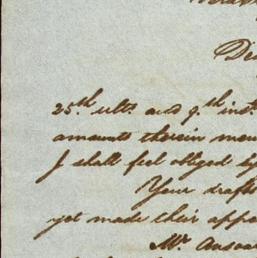 De
25th ulto. and 9th inst.
amounts therein men
I shall feel obliged
Your drafts
yet made their appe
Mr.